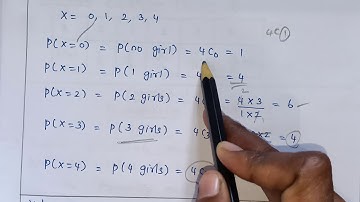 X = 0, 1, 2, 3, 4
4C1
P(X=0) = P(no girl) = 4C0 = 1
P(X=1) = P(1 girl) = 4 = 4
P(X=2) = P(2 girls) = 4C = 4×3 / 1×2 = 6
P(X=3) = P(3 girls) = 4C3 = 4
P(X=4) = P(4 girls) = 4C